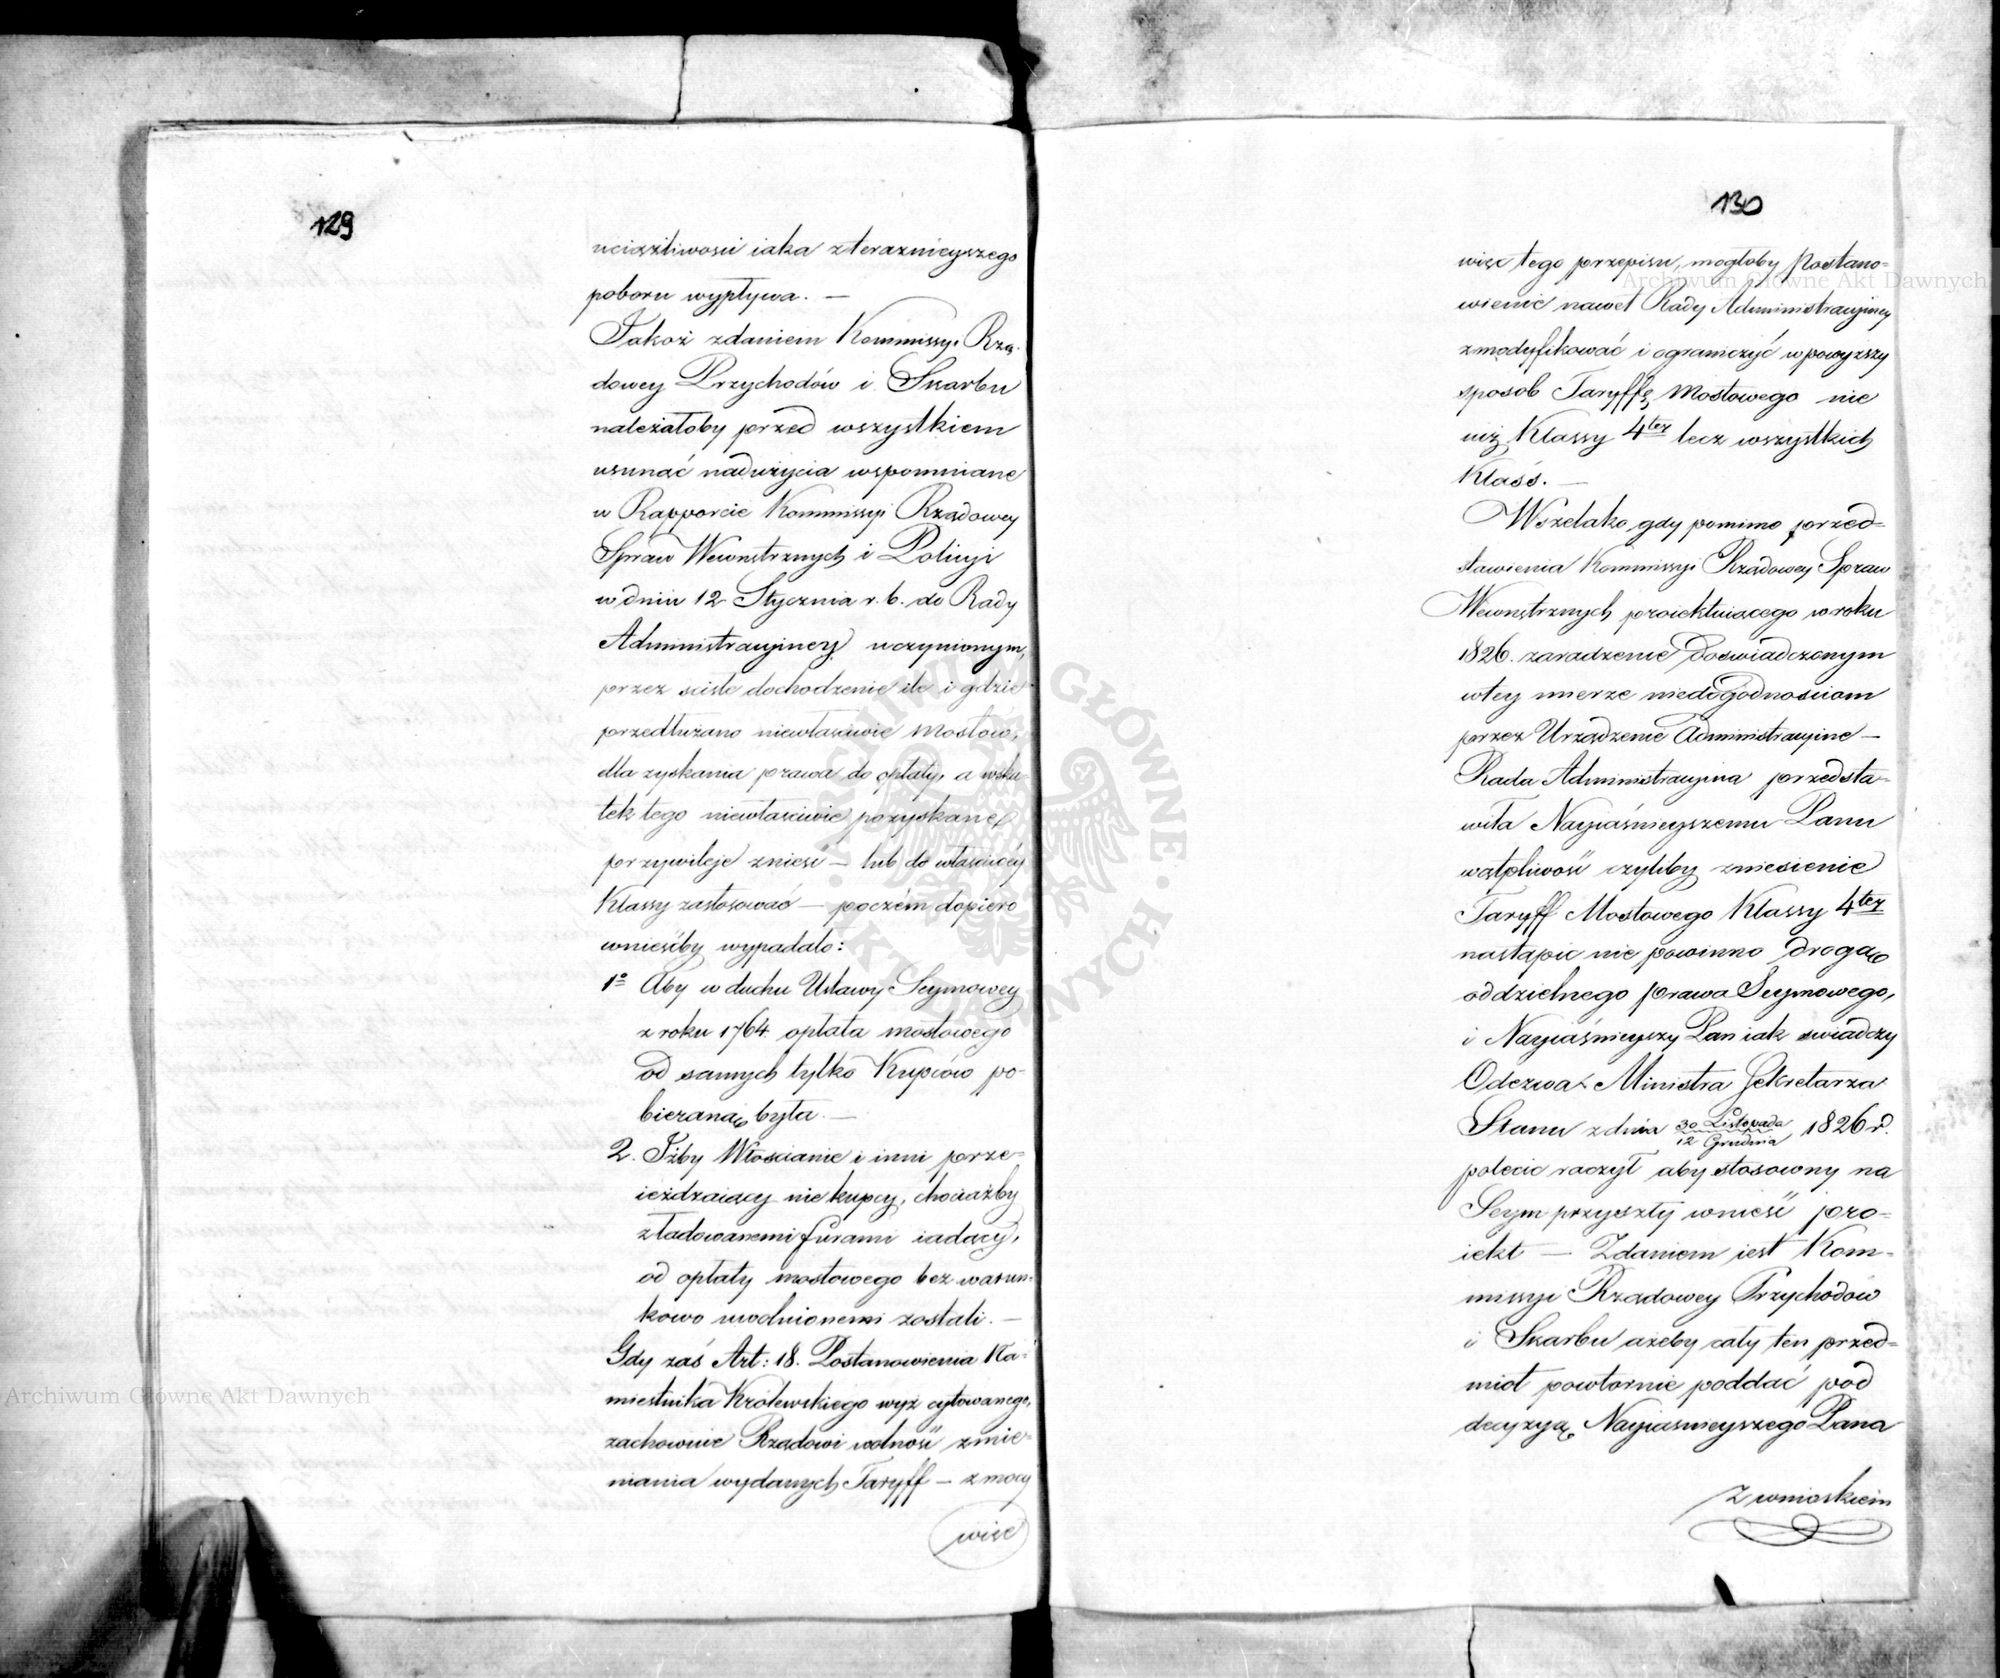 129
uciążliwości iaka z teraznieyszego
poboru wypływa. —
Jakoż zdaniem Kommissyi Rzą-
dowey Przychodów i Skarbu
należałoby przed wszystkiem
usunąć nadużycia wspomniane
w Rapporcie Kommissyi Rządowey
Spraw Wewnętrznych i Policyi
w dniu 12 Stycznia r. b. do Rady
Administracyjney uczynionym,
przez ścisłe dochodzenie ile i gdzie
przedłużano niewłaściwie Mostów,
dla zyskania prawa do opłaty, a wsku-
tek tego niewłaściwie pozyskane
przywileje znieść — lub do właściwéy
Klassy zastosować — poczém dopiero
wnieśćby wypadało:
1º Aby w duchu Ustawy Seymowey
z roku 1764. opłata mostowego
od samych tylko Kupców po-
bieraną była. —
2. Iżby Włościanie i inni prze-
ieżdzaiący nie kupcy, chociażby
z ładowanemi furami iadący,
od opłaty mostowego bez warun-
kowo uwolnionemi zostali. —
Gdy zaś Art: 18. Postanowienia Na-
miestnika Królewskiego wyż cytowanego,
zachownie Rządowi wolność zmie-
niania wydanych Taryff — z mocy
więc
130
więc tego przepisu, mogłoby Postano-
wienie nawet Rady Administracyjney
zmodyfikować i ograniczyć w powyższy
sposob Taryffę Mostowego nie
iuż Klassy 4tey lecz wszystkich
Klass. —
Wszelako gdy pomimo przed-
stawienia Kommissyi Rządowey Spraw
Wewnętrznych proiektuiącego w roku
1826. zaradzenie doświadczonym
w tey mierze niedogodnościom
przez Urządzenie Administracyine —
Rada Administracyina przedsta-
wiła Nayiaśnieyszemu Panu
wątpliwość czyliby zniesienie
Taryff Mostowego Klassy 4tey
nastąpić nie powinno drogą
oddzielnego prawa Seymowego,
i Nayiaśnieyszy Pan iak świadczy
Odezwa Ministra Sekretarza
Stanu z dnia 30 Listopada / 12 Grudnia 1826 r.
polecić raczył aby stosowny na
Seym przyszły wnieść pro-
iekt — Zdaniem iest Kom-
missyi Rządowey Przychodów
i Skarbu ażeby cały ten przed-
miot powtornie poddać pod
decyzyą Nayiaśnieyszego Pana
z wnioskiem
Archiwum Główne Akt Dawnych
Archiwum Główne Akt Dawnych
ARCHIWUM GŁÓWNE AKT DAWNYCH